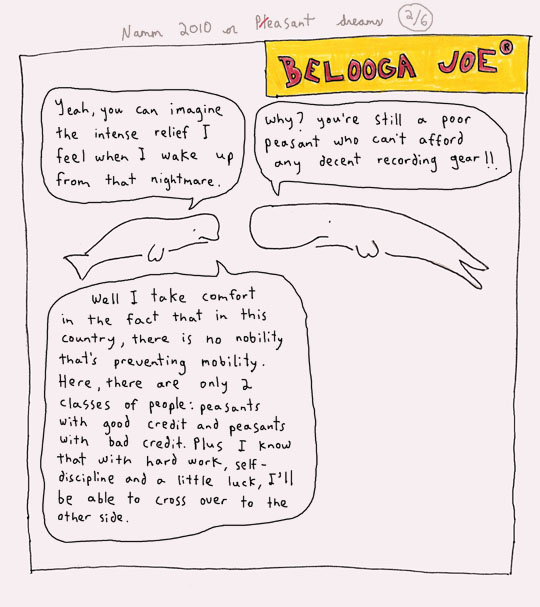 Namm 2010 or Pleasant dreams 2/6
BELOOGA JOE®
Yeah, you can imagine
the intense relief I
feel when I wake up
from that nightmare.
Why? you're still a poor
peasant who can't afford
any decent recording gear!!
Well I take comfort
in the fact that in this
country, there is no nobility
that's preventing mobility.
Here, there are only 2
classes of people: peasants
with good credit and peasants
with bad credit. Plus I know
that with hard work, self-
discipline and a little luck, I'll
be able to cross over to the
other side.